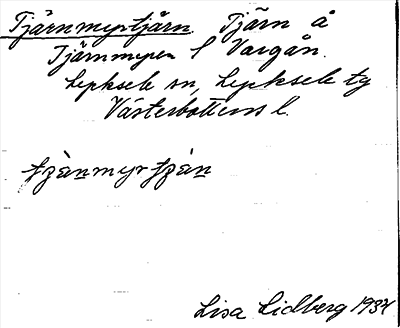 Tjärnmyrtjärn. Tjärn å
Tjärnmyren l Vargån.
Lycksele sn, Lycksele tg
Västerbottens l.
tjànmyrtjàn
Lisa Lidberg 1934